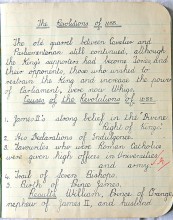 The Revolution of 1688.
The old quarrel between Cavalier and
Parliamentarian still continued, although
the King's supporters had become Tories, and
their opponents, those who wished to
restrain the King and increase the power
of Parliament, were now Whigs.
Causes of the Revolution of 1688.
1. James II's strong belief in the "Divine
Right of Kings".
2. His Declarations of Indulgence.
3. Favourites who were Roman Catholics
were given high offices in Universities
and army.
4. Trial of Seven Bishops.
5. Birth of Prince James.
Result: William, Prince of Orange,
nephew of James II, and husband